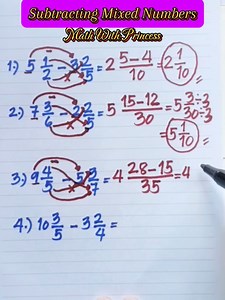 Subtracting Mixed Numbers
Math With Princess
1.) 5 1/2 - 3 2/5 = 2 5-4/10 = 2 1/10
2.) 7 3/6 - 2 2/5 = 5 15-12/30 = 5 3÷3/30÷3
= 5 1/10
3.) 9 4/5 - 5 3/7 = 4 28-15/35 = 4
4.) 10 3/5 - 3 2/4 =